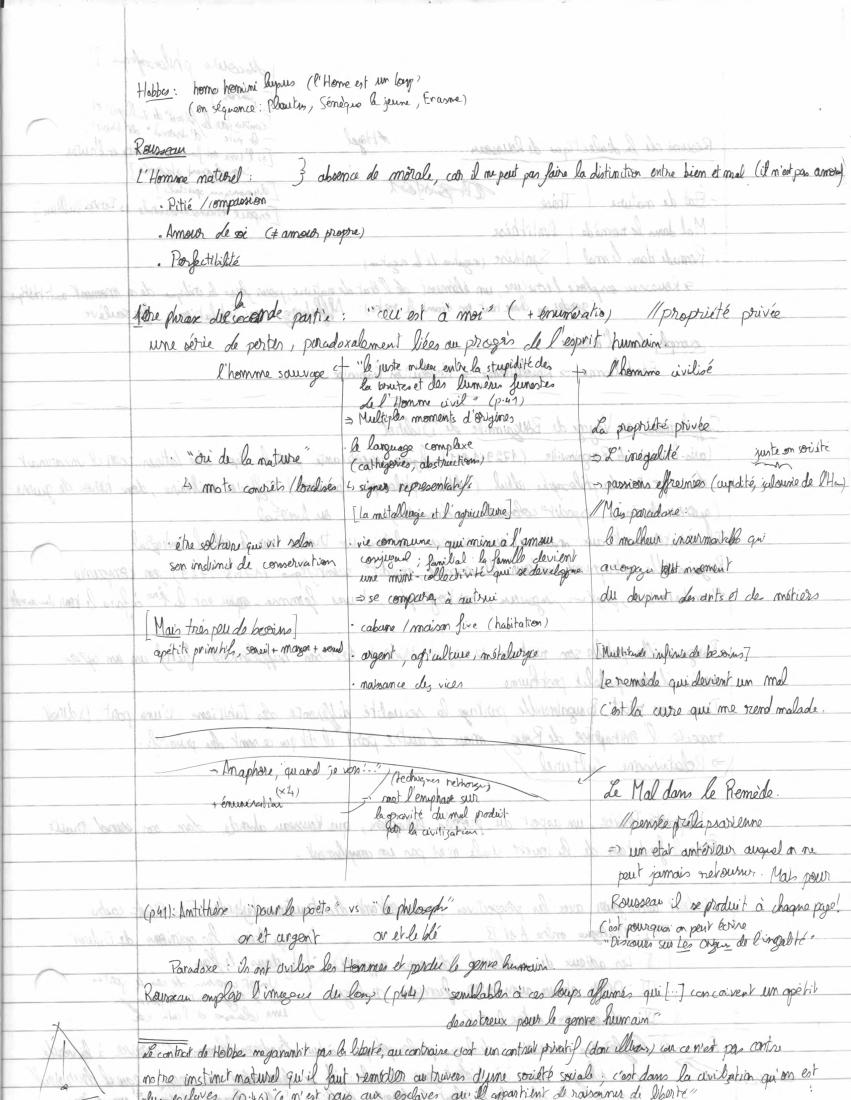 Hobbes : homo homini lupus (l'Home est un loup)
(en séquence : Plautus, Sénèque le jeune, Erasme)
Rousseau
L'Homme naturel : } absence de morale, car il ne peut pas faire la distinction entre bien et mal (il n'est pas amoral)
. Pitié / compassion
. Amour de soi (≠ amour propre)
. Perfectibilité
1ère phrase de la seconde partie : "ceci est à moi" ( + énumératio) // propriété privée
une série de pertes, paradoxalement liées au progrès de l'esprit humain
l'homme sauvage ← "le juste milieu entre la stupidité des → l'homme civilisé
la brutes et des lumières funestes
de l'Homme civil" (p.41)
⇒ Multiples moments d'origines
. "cri de la nature"
↳ mots concrêts / localisés
. être solitaire qui vit selon
son instinct de conservation
[Mais très peu de besoins]
apétits primitifs,
. le language complexe
(cathégories, abstructions)
↳ signes representatifs
[la métallurgie et l'agriculture]
. vie commune, qui mine à l'amour
conjugal ; familial : la famille devient
une mini-collectivité qui se développe
⇒ se compara à autrui
. cabane / maison fixe (habitation)
. argent, agriculture, métalurgie
. naissance des vices
La propriété privée
⇒ L'inégalité
juste en société
⇒ passions effreinées (cupidité, jalousie de l'Ho)
// Mais paradoxe :
le malheur insurmontable qui
accompagne tout moment
du devpmt des arts et de métiers
[Multitude infinie de besoins]
le remède qui devient un mal
C'est la cure qui me rend malade.
→ Anaphore, "quand je vois..."
(x4)
+ énumération
(techniques rethoriques)
met l'emphase sur
la gravité du mal produit
par la civilization
Le Mal dans le Remède.
// pensée prélapsarienne
⇒ un etat antérieur auquel on ne
peut jamais retourner. Mais pour
Rousseau il se produit à chaque page!
C'est pourquoi on peut écrire
"Discours sur Les Origines de l'inégalité"
(p41): Antithèse "pour le poète" vs "le philosoph"
or et argent or et le blé
Paradoxe : ils ont civilisé les Hommes et perdu le genre humain
Rousseau emploie l'image du loup (p44) "semblables à ces loups affamés qui [...] concoivent un apétit
desastreux pour le genre humain"
Le contrat de Hobbes ne garantit pas la liberté, au contraire c'est un contrat privatif car ce n'est pas contre
notre instinct naturel qu'il faut remédier au travers d'une société sociale : c'est dans la civilization qu'on est
des esclaves "ce n'est pas aux esclaves qu'il appartient de raisonner de liberté"